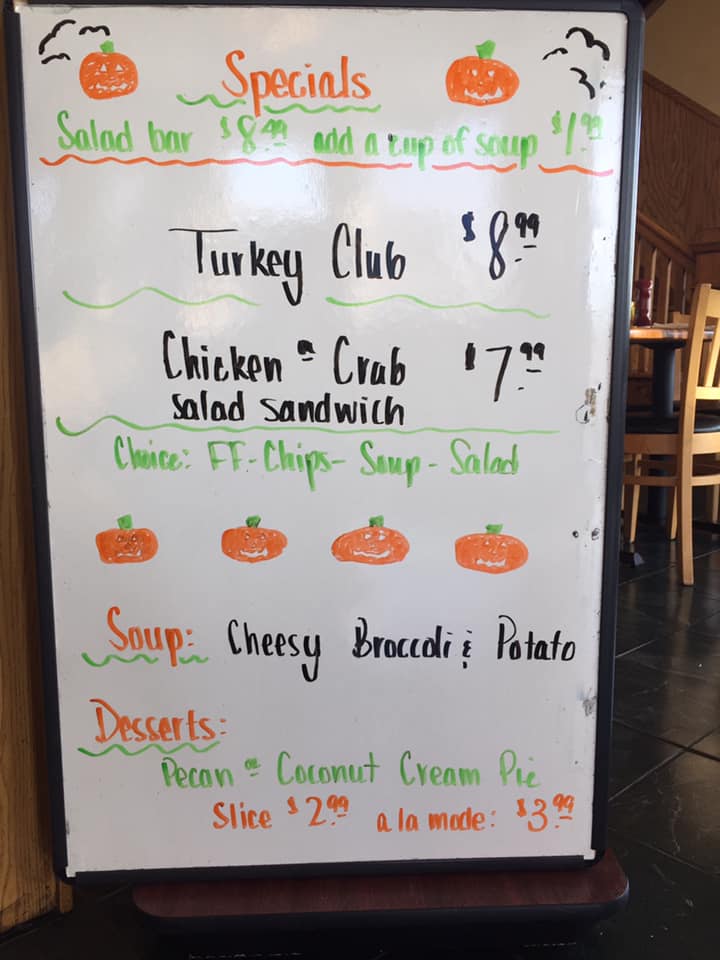 Specials
Salad bar $8.99 add a cup of soup $1.99
Turkey Club $8.99
Chicken or Crab $7.99
Salad Sandwich
Choice: FF-Chips-Soup-Salad
Soup: Cheesy Broccoli & Potato
Desserts:
Pecan or Coconut Cream Pie
Slice $2.99 a la mode: $3.99